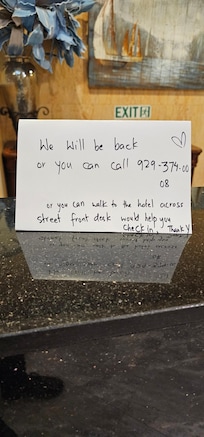 EXIT
We Will be back
or you can call 929-374-00
08
or you can walk to the hotel across
street front desk would help you
Check in, Thank Y